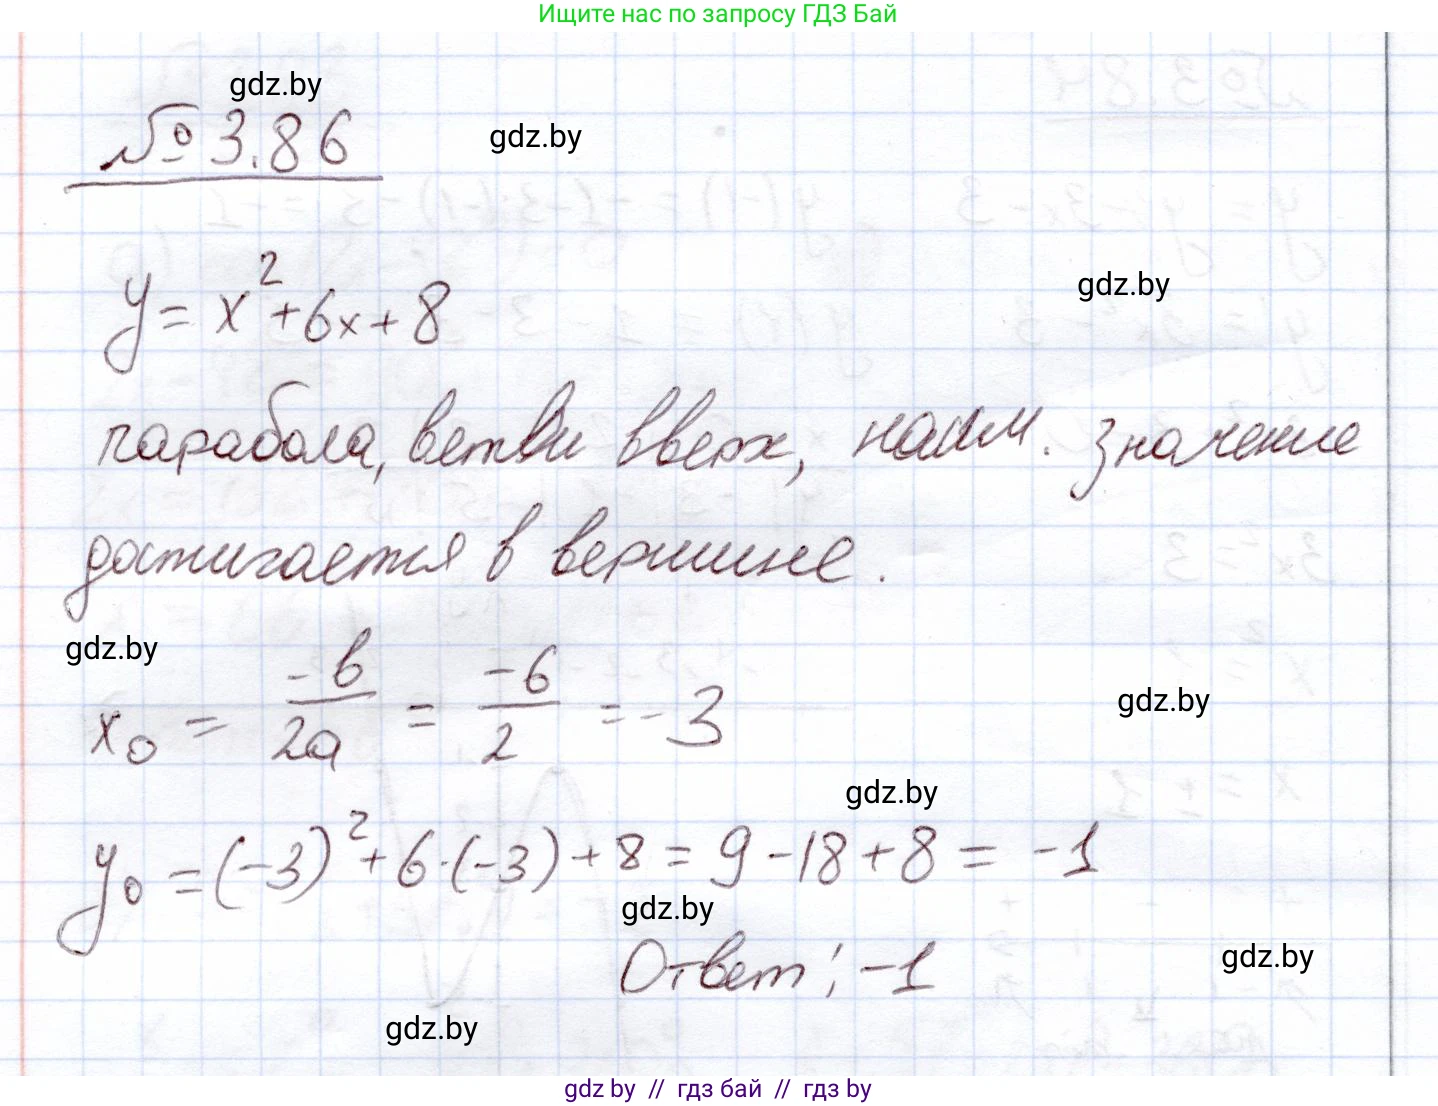 Ищите нас по запросу ГДЗ Бай
gdz.by
№ 3.86
gdz.by
y = x² + 6x + 8
gdz.by
парабола, ветви вверх, наим. значение
достигается в вершине.
gdz.by
x₀ = -b/2a = -6/2 = -3
gdz.by
gdz.by
y₀ = (-3)² + 6·(-3) + 8 = 9 - 18 + 8 = -1
gdz.by
Ответ: -1
gdz.by
gdz.by
gdz by // гдз бай // гдз by